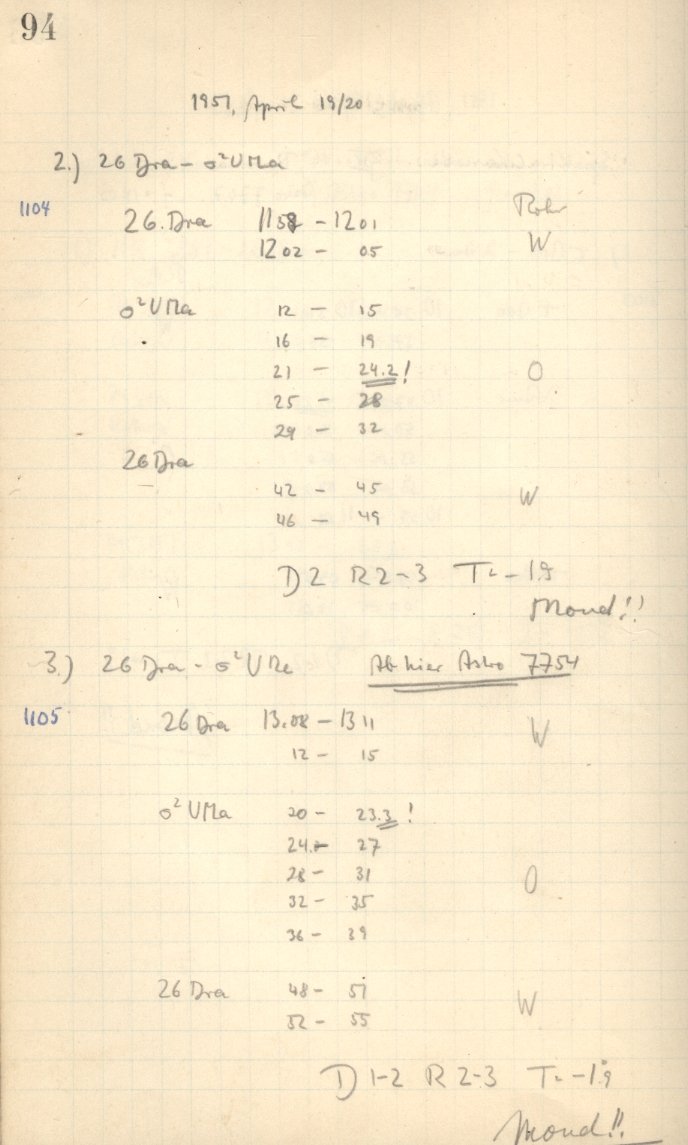 94
1951, April 19/20
2.) 26 Dra - σ²UMa
1104
Rohr
26. Dra 1158 - 1201 W
1202 - 05
σ²UMa 12 - 15
16 - 19
21 - 24.2! O
25 - 28
29 - 32
26 Dra
42 - 45 W
46 - 49
D2 R2-3 T=-1.9
Mond!!
3.) 26 Dra - σ²UMa Ab hier Astro 7754
1105 26 Dra 13.08 - 13 11 W
12 - 15
σ²UMa 20 - 23.3!
24 - 27
28 - 31 O
32 - 35
36 - 39
26 Dra 48 - 51 W
52 - 55
D 1-2 R 2-3 T=-1.9
Mond!!